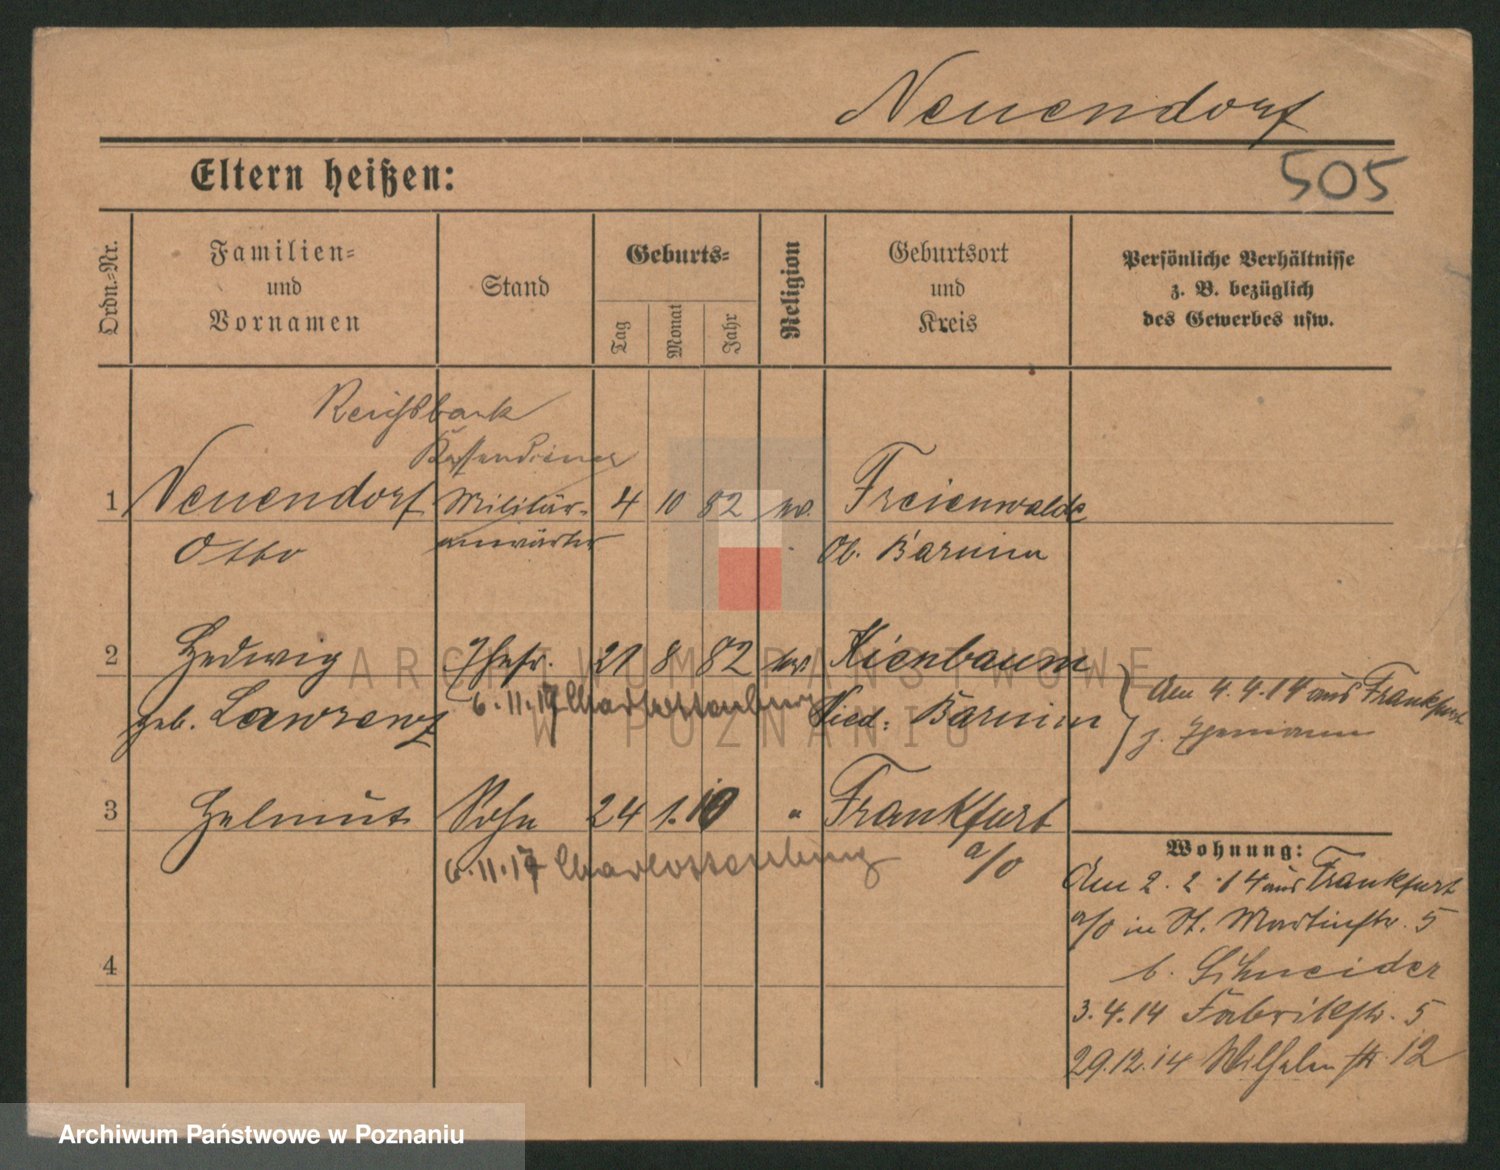 Neuendorf
505
Eltern heißen:
Ordn.-Nr.
Familien-
und
Vornamen
Stand
Geburts-
Tag
Monat
Jahr
Religion
Geburtsort
und
Kreis
Persönliche Verhältnisse
z. B. bezüglich
des Gewerbes usw.
Reichsbank
Kassendiener
1 Neuendorf Militär- 4 10 82 ev. Freienwalde
Otto anwärter Ob. Barnim
2 Hedwig Ehefr. 21 8 82 ev. Kienbaum
geb. Lawrenz 6.11.17 Charlottenburg Nied. Barnim
Am 4.4.14 aus Frankfurt
z. Ehemann
3 Helmut Sohn 24 1. 10 " Frankfurt
6.11.17 Charlottenburg a/O
4
Wohnung:
Am 2.2.14 aus Frankfurt
a/O in St. Martinstr. 5
b. Schneider
3.4.14 Fabrikstr. 5
29.12.14 Wilhelmstr. 12
ARCHIWUM PAŃSTWOWE
W POZNANIU
Archiwum Państwowe w Poznaniu